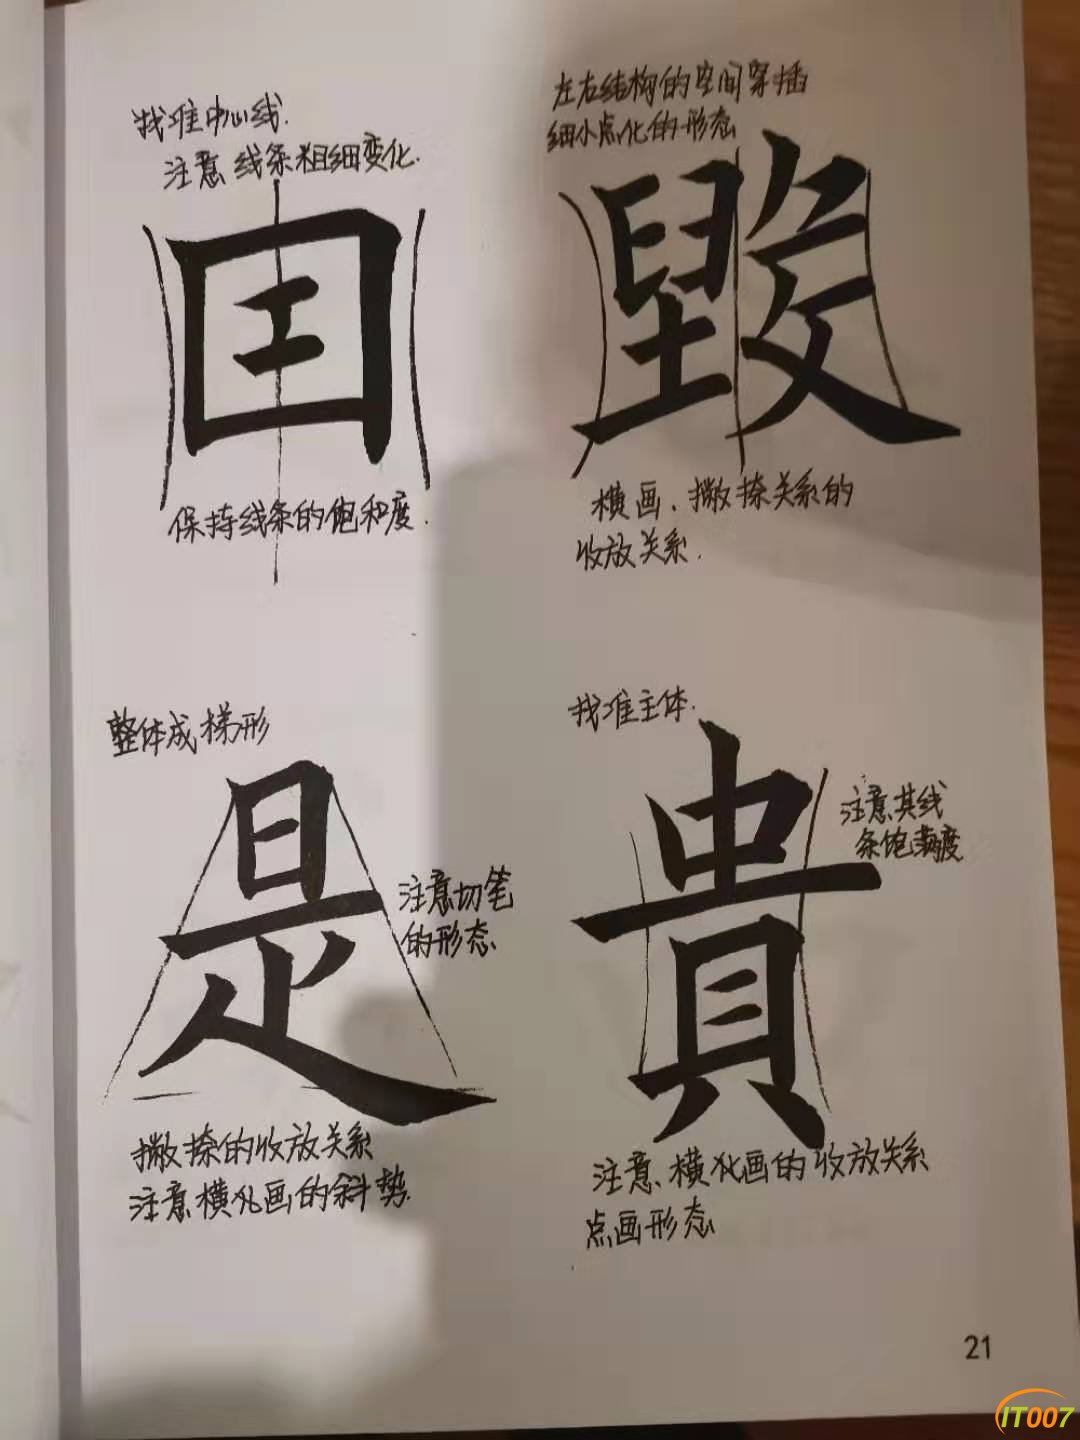 找准中心线.
注意线条粗细变化.
国
保持线条的饱和度.
左右结构的空间穿插
细小点化的形态
毁
横画、撇捺关系的
收放关系.
整体成梯形
是
注意切笔
的形态
撇捺的收放关系
注意横化画的斜势
找准主体.
貴
注意其线
条饱满度
注意、横化画的收放关系
点画形态
21
IT007